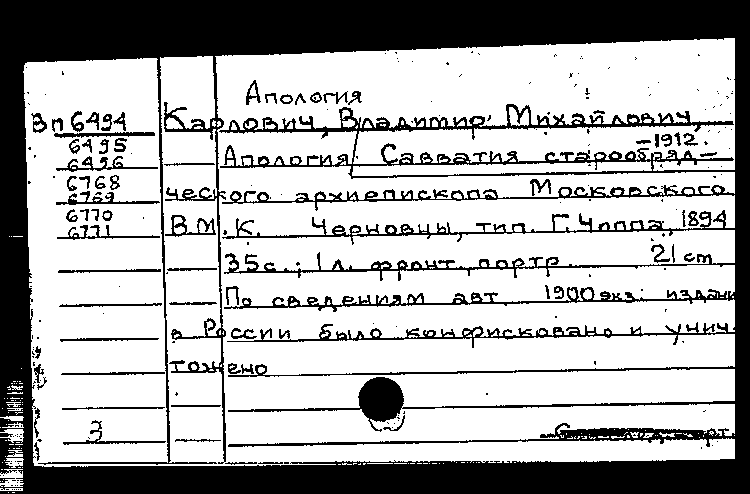 Апология
Вп 6494 Карлович, Владимир Михайлович,
6495 -1912.
6496 Апология Савватия старообряд-
6768
6769 ческого архиепископа Московского
6770
6771 В.М.К. Черновцы, тип. Г. Чоппа, 1894
35 с.; 1 л. фронт., портр. 21 cm
По сведениям авт. 1900 экз. издани
в России было конфисковано и унич-
тожено
3